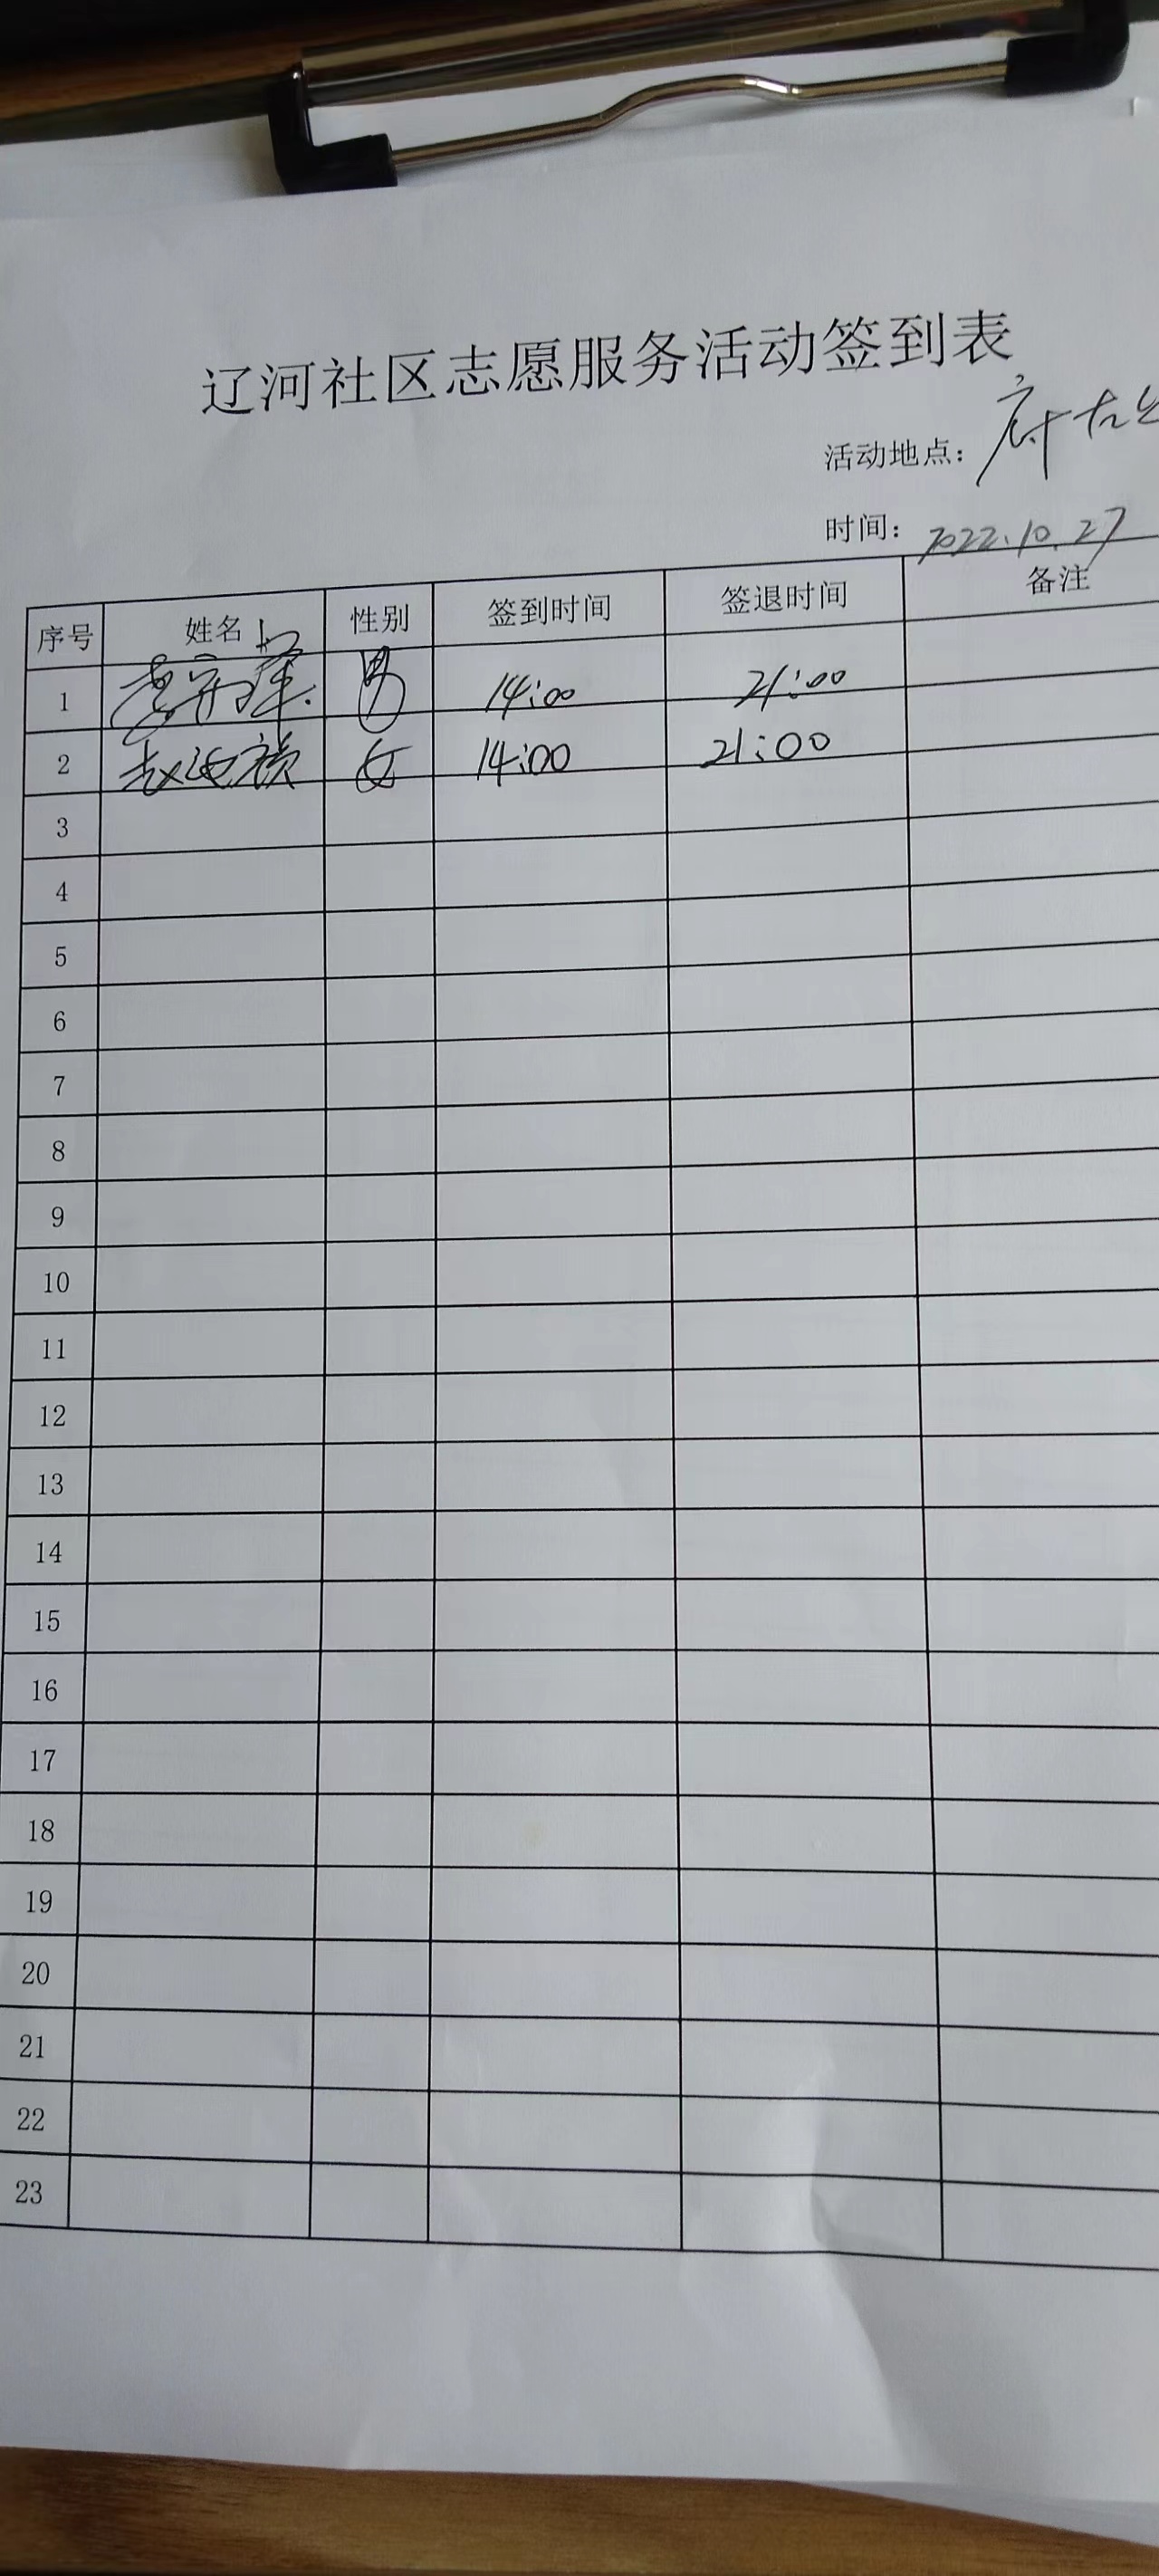 辽河社区志愿服务活动签到表
活动地点：
时间：2022.10.27
序号 姓名 性别 签到时间 签退时间 备注
1 男 14:00 21:00
2 赵 女 14:00 21:00
3
4
5
6
7
8
9
10
11
12
13
14
15
16
17
18
19
20
21
22
23